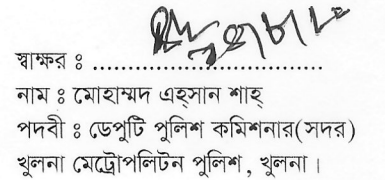 স্বাক্ষর ঃ ..............................
নাম ঃ মোহাম্মদ এহ্‌সান শাহ্
পদবী ঃ ডেপুটি পুলিশ কমিশনার(সদর)
খুলনা মেট্রোপলিটন পুলিশ, খুলনা।